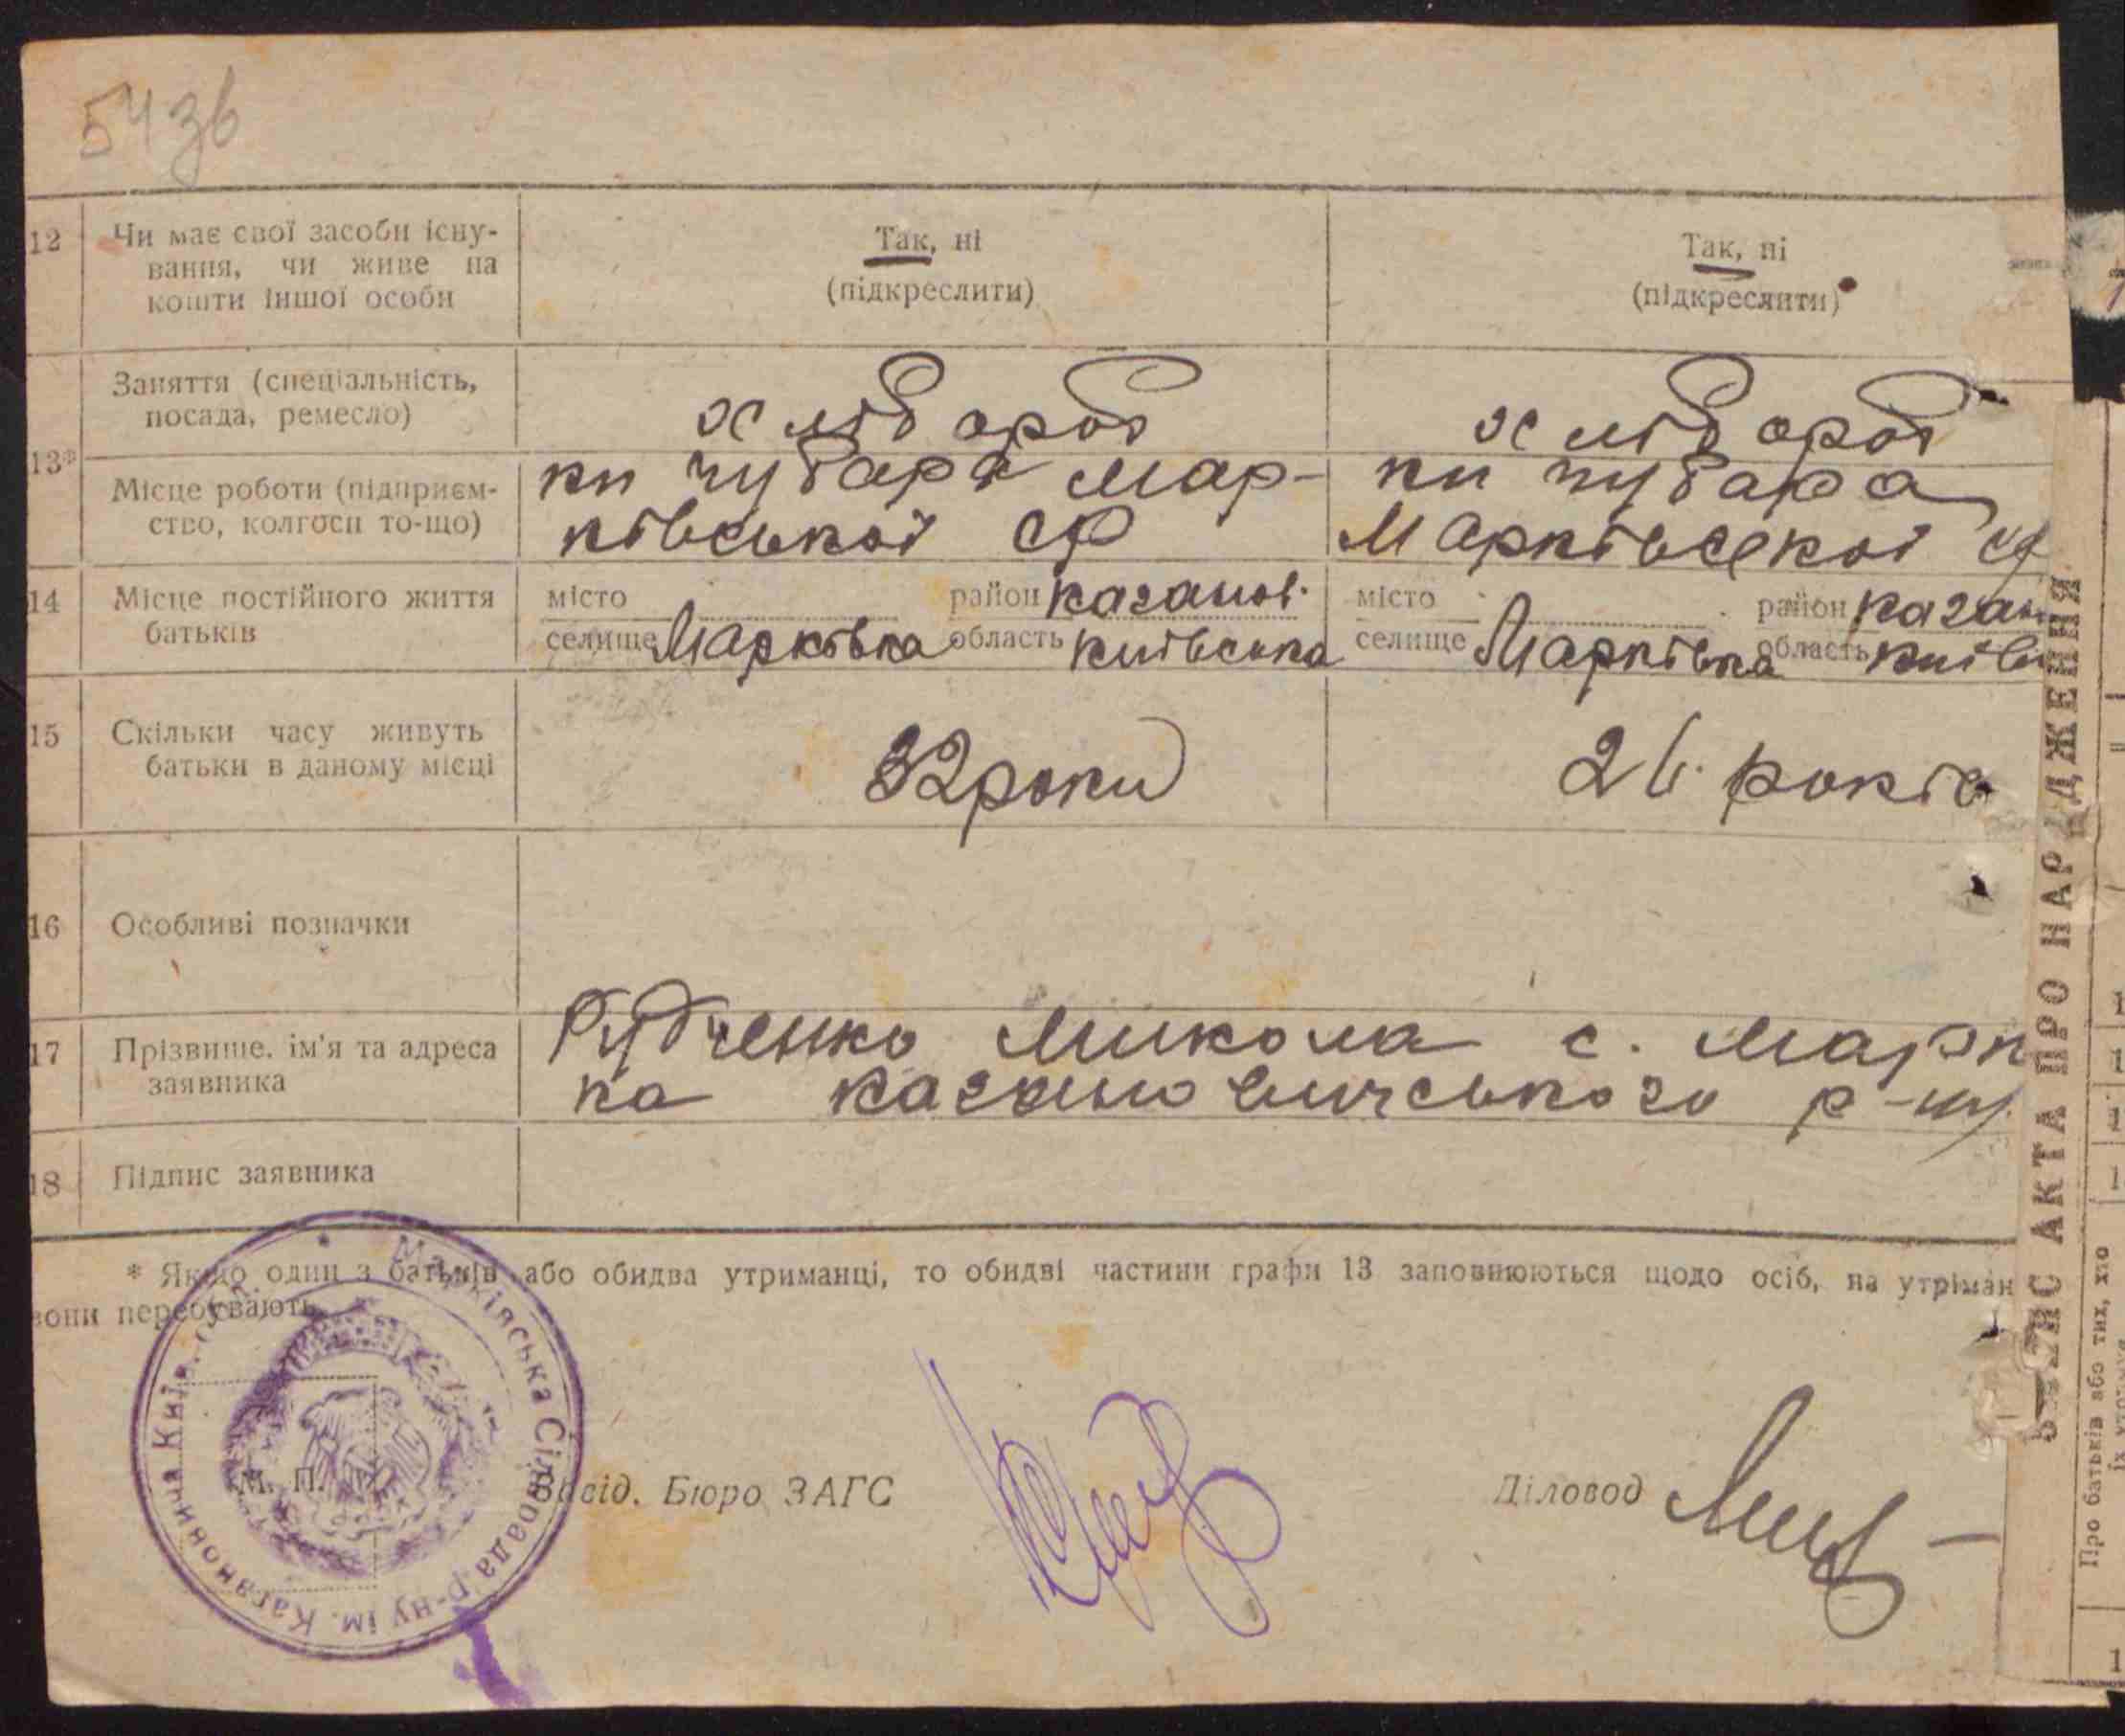 54зв
12 Чи має свої засоби існу-
вання, чи живе на
кошти іншої особи
Так, ні
(підкреслити)
Так, ні
(підкреслити)
13*
Заняття (спеціальність,
посада, ремесло)
хлібороб
хлібороб
Місце роботи (підприєм-
ство, колгосп то-що)
км чубаря Мар-
ківської ср
км чубара
Марківської
14 Місце постійного життя
батьків
місто район каганов.
селище Марківка область київська
місто район каган
селище Марківка область київ
15 Скільки часу живуть
батьки в даному місці
32 роки
26. років
16 Особливі позначки
17 Прізвище, ім'я та адреса
заявника
Рудченко Микола с. Марк
ка кагановичського р-ну.
18 Підпис заявника
* Якщо один з батьків або обидва утриманці, то обидві частини графи 13 заповнюються щодо осіб, на утриман
вони перебувають.
Марківська Сільрада р-ну ім. Кагановича Київ.
М. П.
Завід. Бюро ЗАГС
Діловод
ЗАПИС АКТА ПРО НАРОДЖЕННЯ
Про батьків або тих, хто